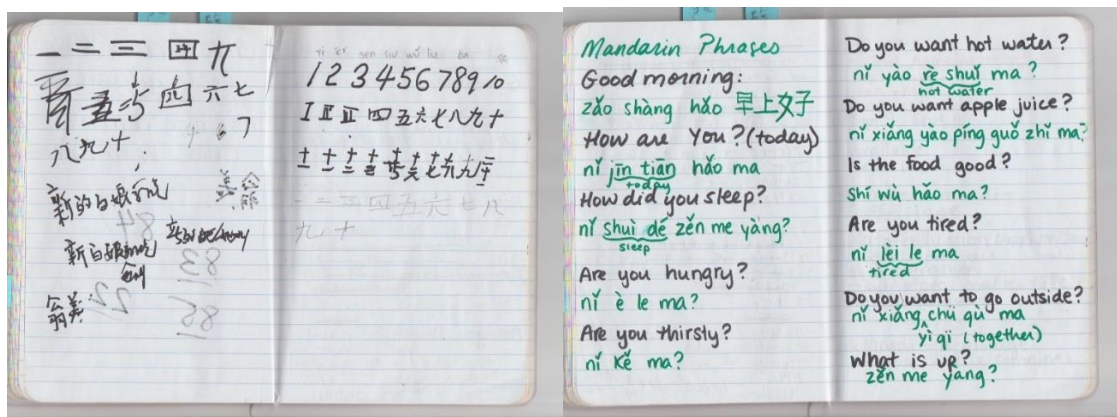 一 二 三 四 九
五 四 六 七
八 九 十
新的白娘
新白娘
yi er san siu wǔ liu ba
1 2 3 4 5 6 7 8 9 10
四 五 六 七 八 九 十
一 二 三 四 五 六 七 八
九 十
Mandarin Phrases
Good morning:
zǎo shàng hǎo 早上好
How are You? (today)
nǐ jīn tiān hǎo ma
today
How did you sleep?
nǐ shuì dé zěn me yàng?
sleep
Are you hungry?
nǐ è le ma?
Are you thirsty?
nǐ kě ma?
Do you want hot water?
nǐ yào rè shuǐ ma?
hot water
Do you want apple juice?
nǐ xiǎng yào píng guǒ zhī ma?
Is the food good?
shí wù hǎo ma?
Are you tired?
nǐ lèi le ma
tired
Do you want to go outside?
nǐ xiǎng chū qù ma
yì qǐ (together)
What is up?
zěn me yàng?